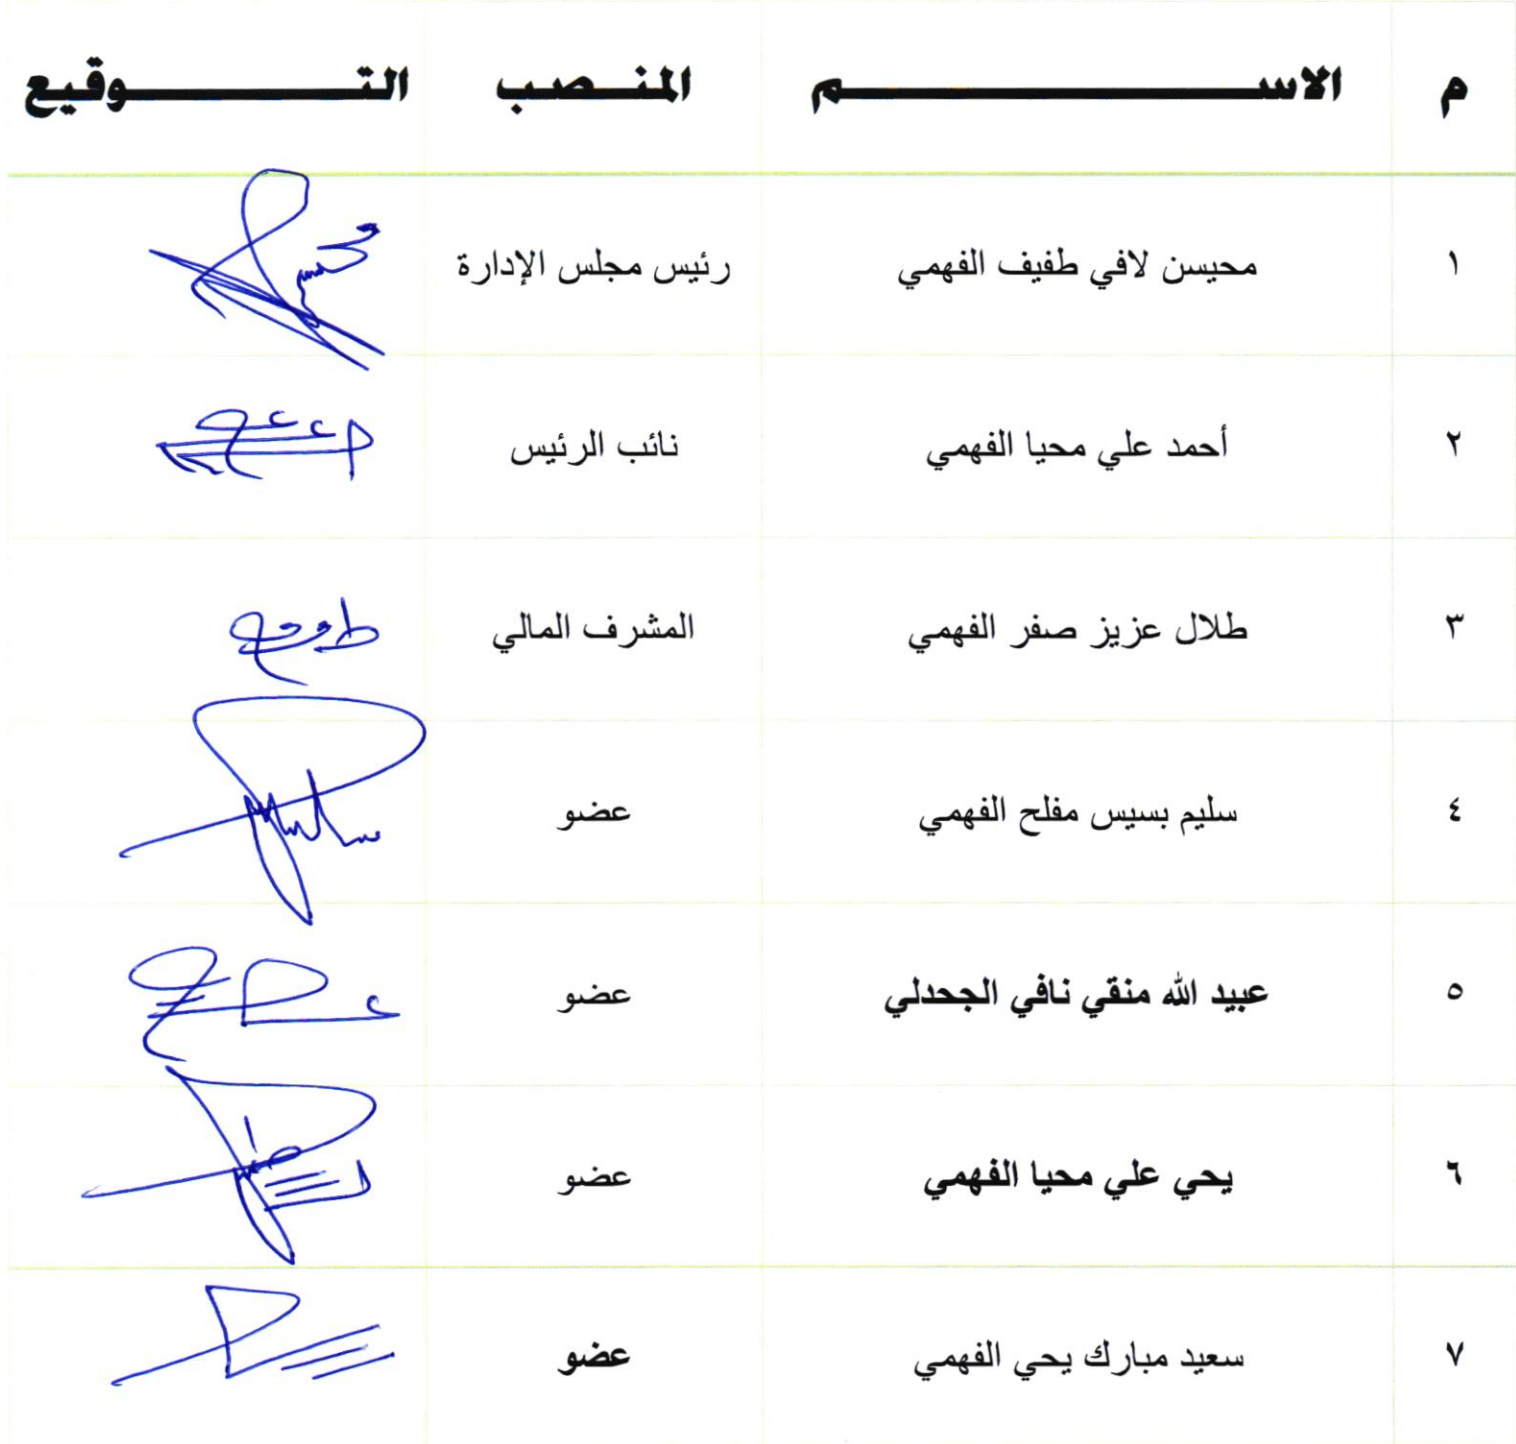 م الاسم المنصب التوقيع
١ محيسن لافي طفيف الفهمي رئيس مجلس الإدارة
٢ أحمد علي محيا الفهمي نائب الرئيس
٣ طلال عزيز صفر الفهمي المشرف المالي
٤ سليم بسيس مفلح الفهمي عضو
٥ عبيد الله منقي نافي الجحدلي عضو
٦ يحي علي محيا الفهمي عضو
٧ سعيد مبارك يحي الفهمي عضو